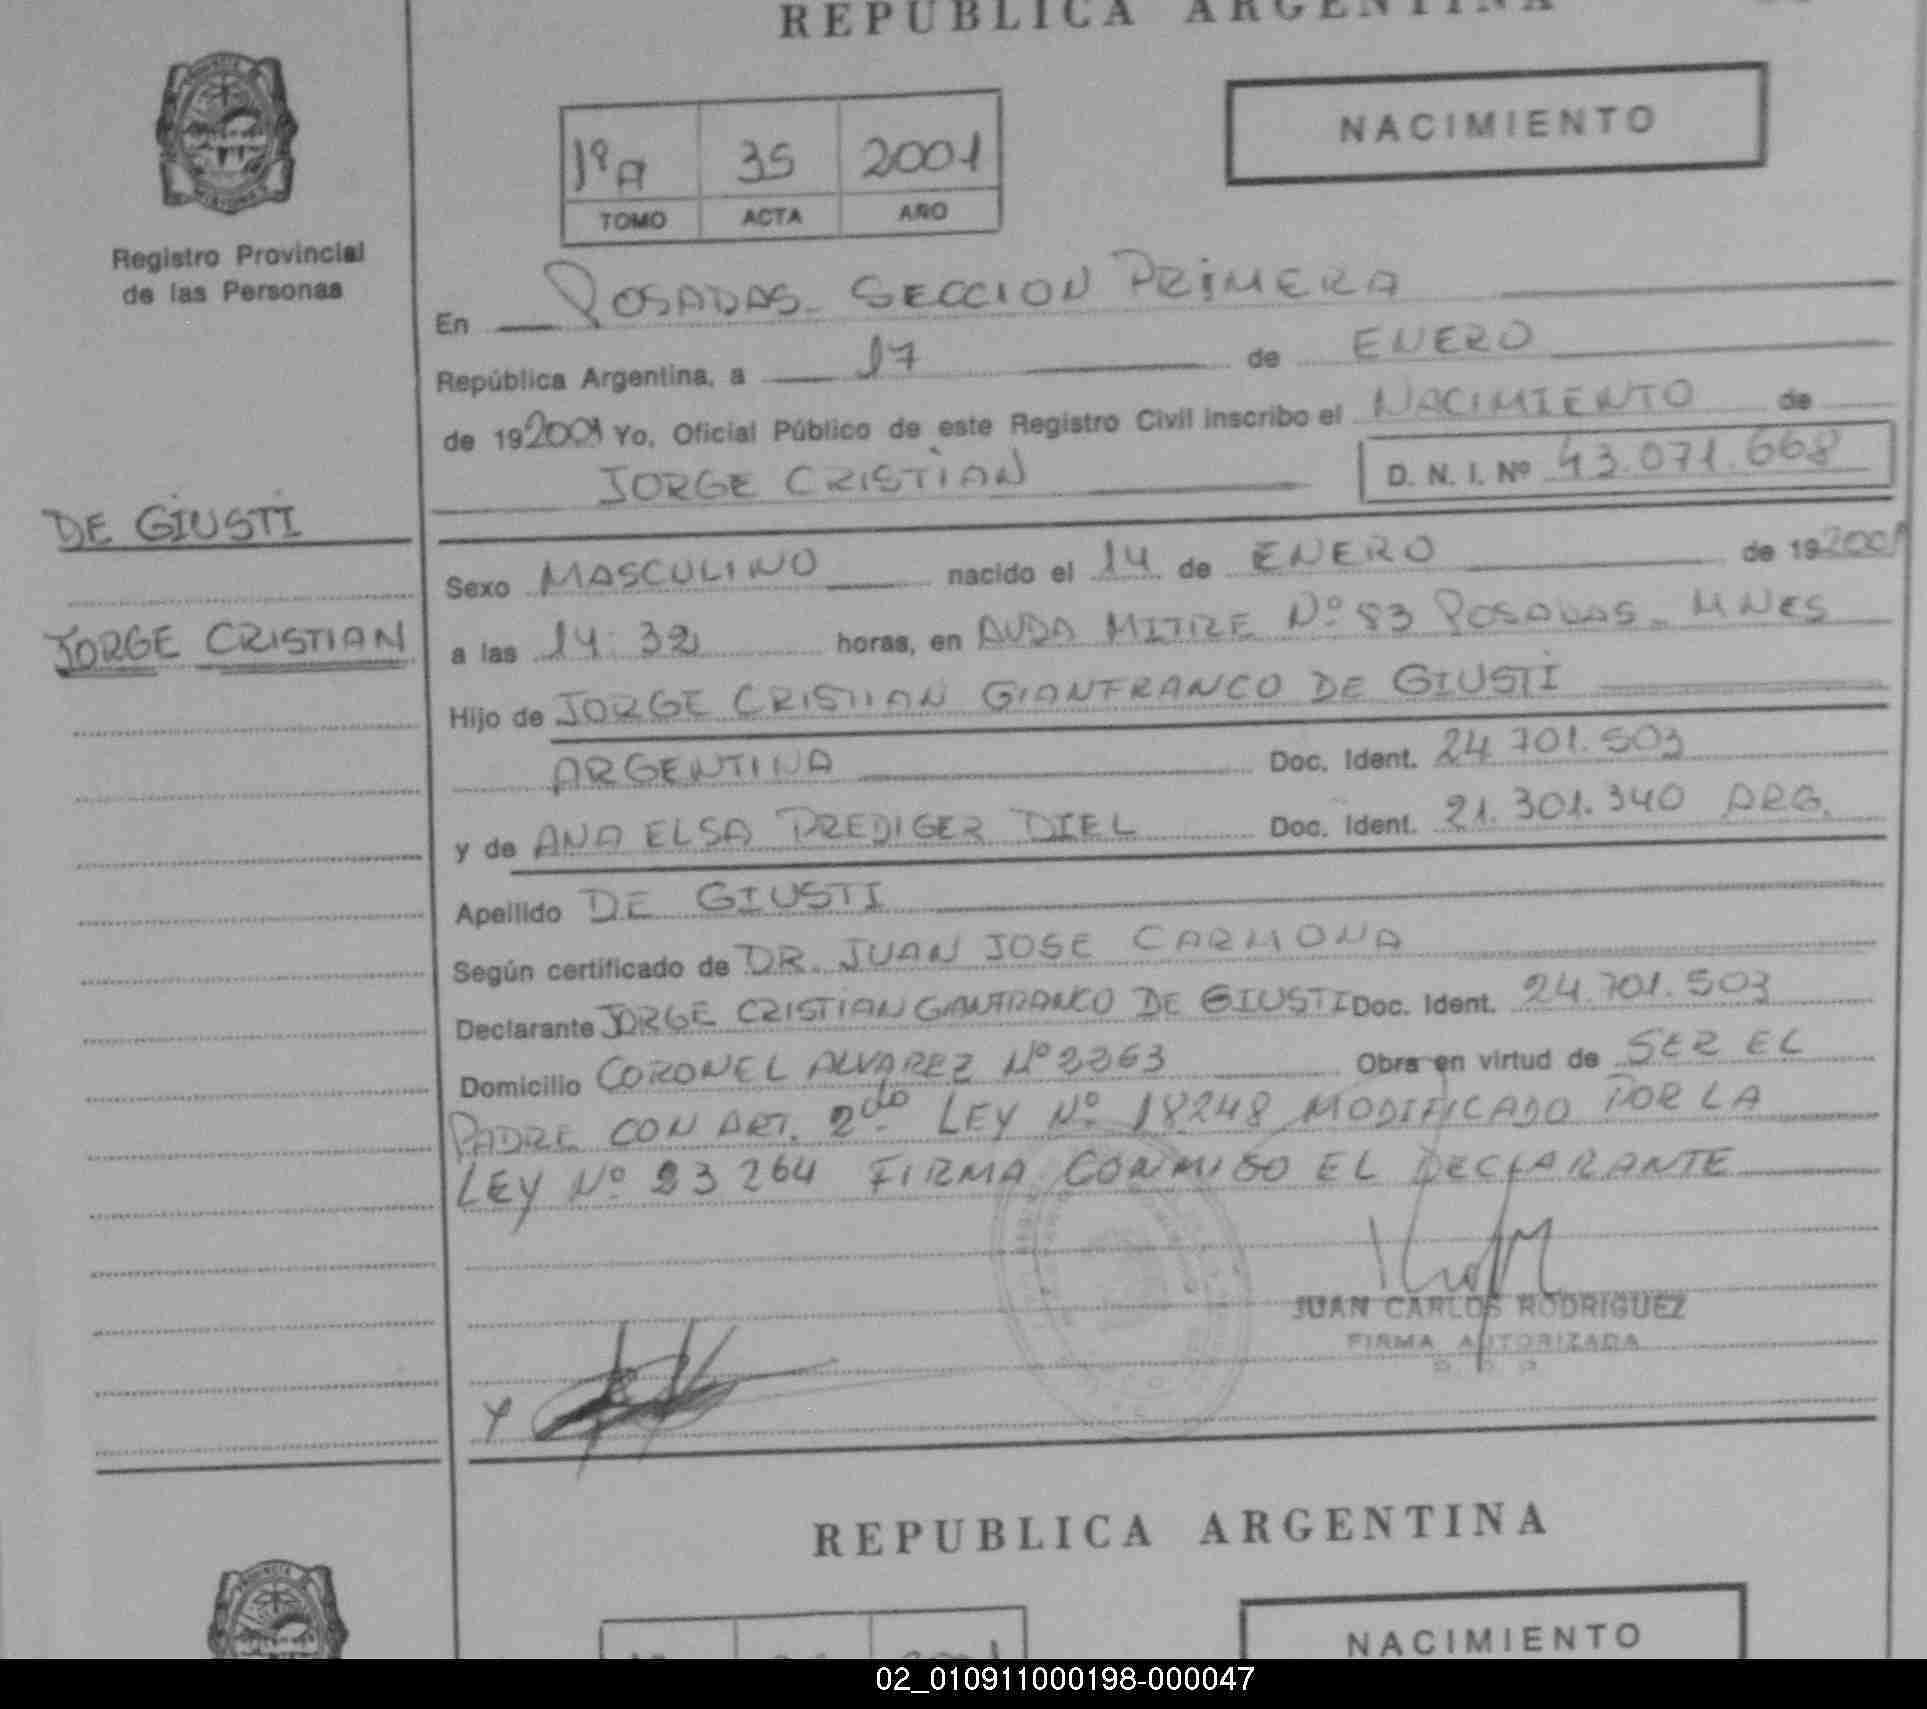 REPUBLICA ARGENTINA
NACIMIENTO
1ºA 35 2001
TOMO ACTA AÑO
Registro Provincial
de las Personas
En POSADAS - SECCION PRIMERA
República Argentina, a 17 de ENERO
de 192001 Yo, Oficial Público de este Registro Civil inscribo el NACIMIENTO de
JORGE CRISTIAN D. N. I. Nº 43.071.668
DE GIUSTI
JORGE CRISTIAN
Sexo MASCULINO nacido el 14 de ENERO de 192001
a las 14:32 horas, en AVDA MITRE Nº 83 POSADAS - MNES
Hijo de JORGE CRISTIAN GIANFRANCO DE GIUSTI
ARGENTINA Doc. Ident. 24.701.503
y de ANA ELSA PREDIGER DIEL Doc. Ident. 21.301.340 ARG.
Apellido DE GIUSTI
Según certificado de DR. JUAN JOSE CARMONA
Declarante JORGE CRISTIAN GIANFRANCO DE GIUSTI Doc. Ident. 24.701.503
Domicilio CORONEL ALVAREZ Nº 2263 Obra en virtud de SER EL
PADRE CON ART. 2do LEY Nº 18248 MODIFICADO POR LA
LEY Nº 23264 FIRMA CONMIGO EL DECLARANTE
JUAN CARLOS RODRIGUEZ
FIRMA AUTORIZADA
REPUBLICA ARGENTINA
NACIMIENTO
02_010911000198-000047